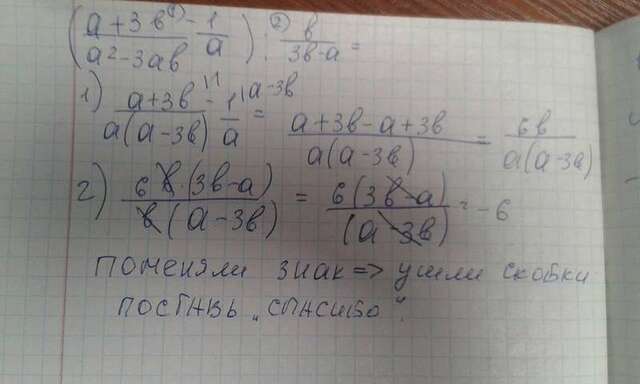 (a+3в/a²-3aв ¹⁾- 1/a) :²⁾ в/3в-a =
1) a+3в/a(a-3в) - 1/a = a+3в-a+3в/a(a-3в) = 6в/a(a-3в)
2) 6в·(3в-a)/в(a-3в) = 6(3в-a)/(a-3в) = -6
поменяли знак => ушли скобки
поставь "спасибо".